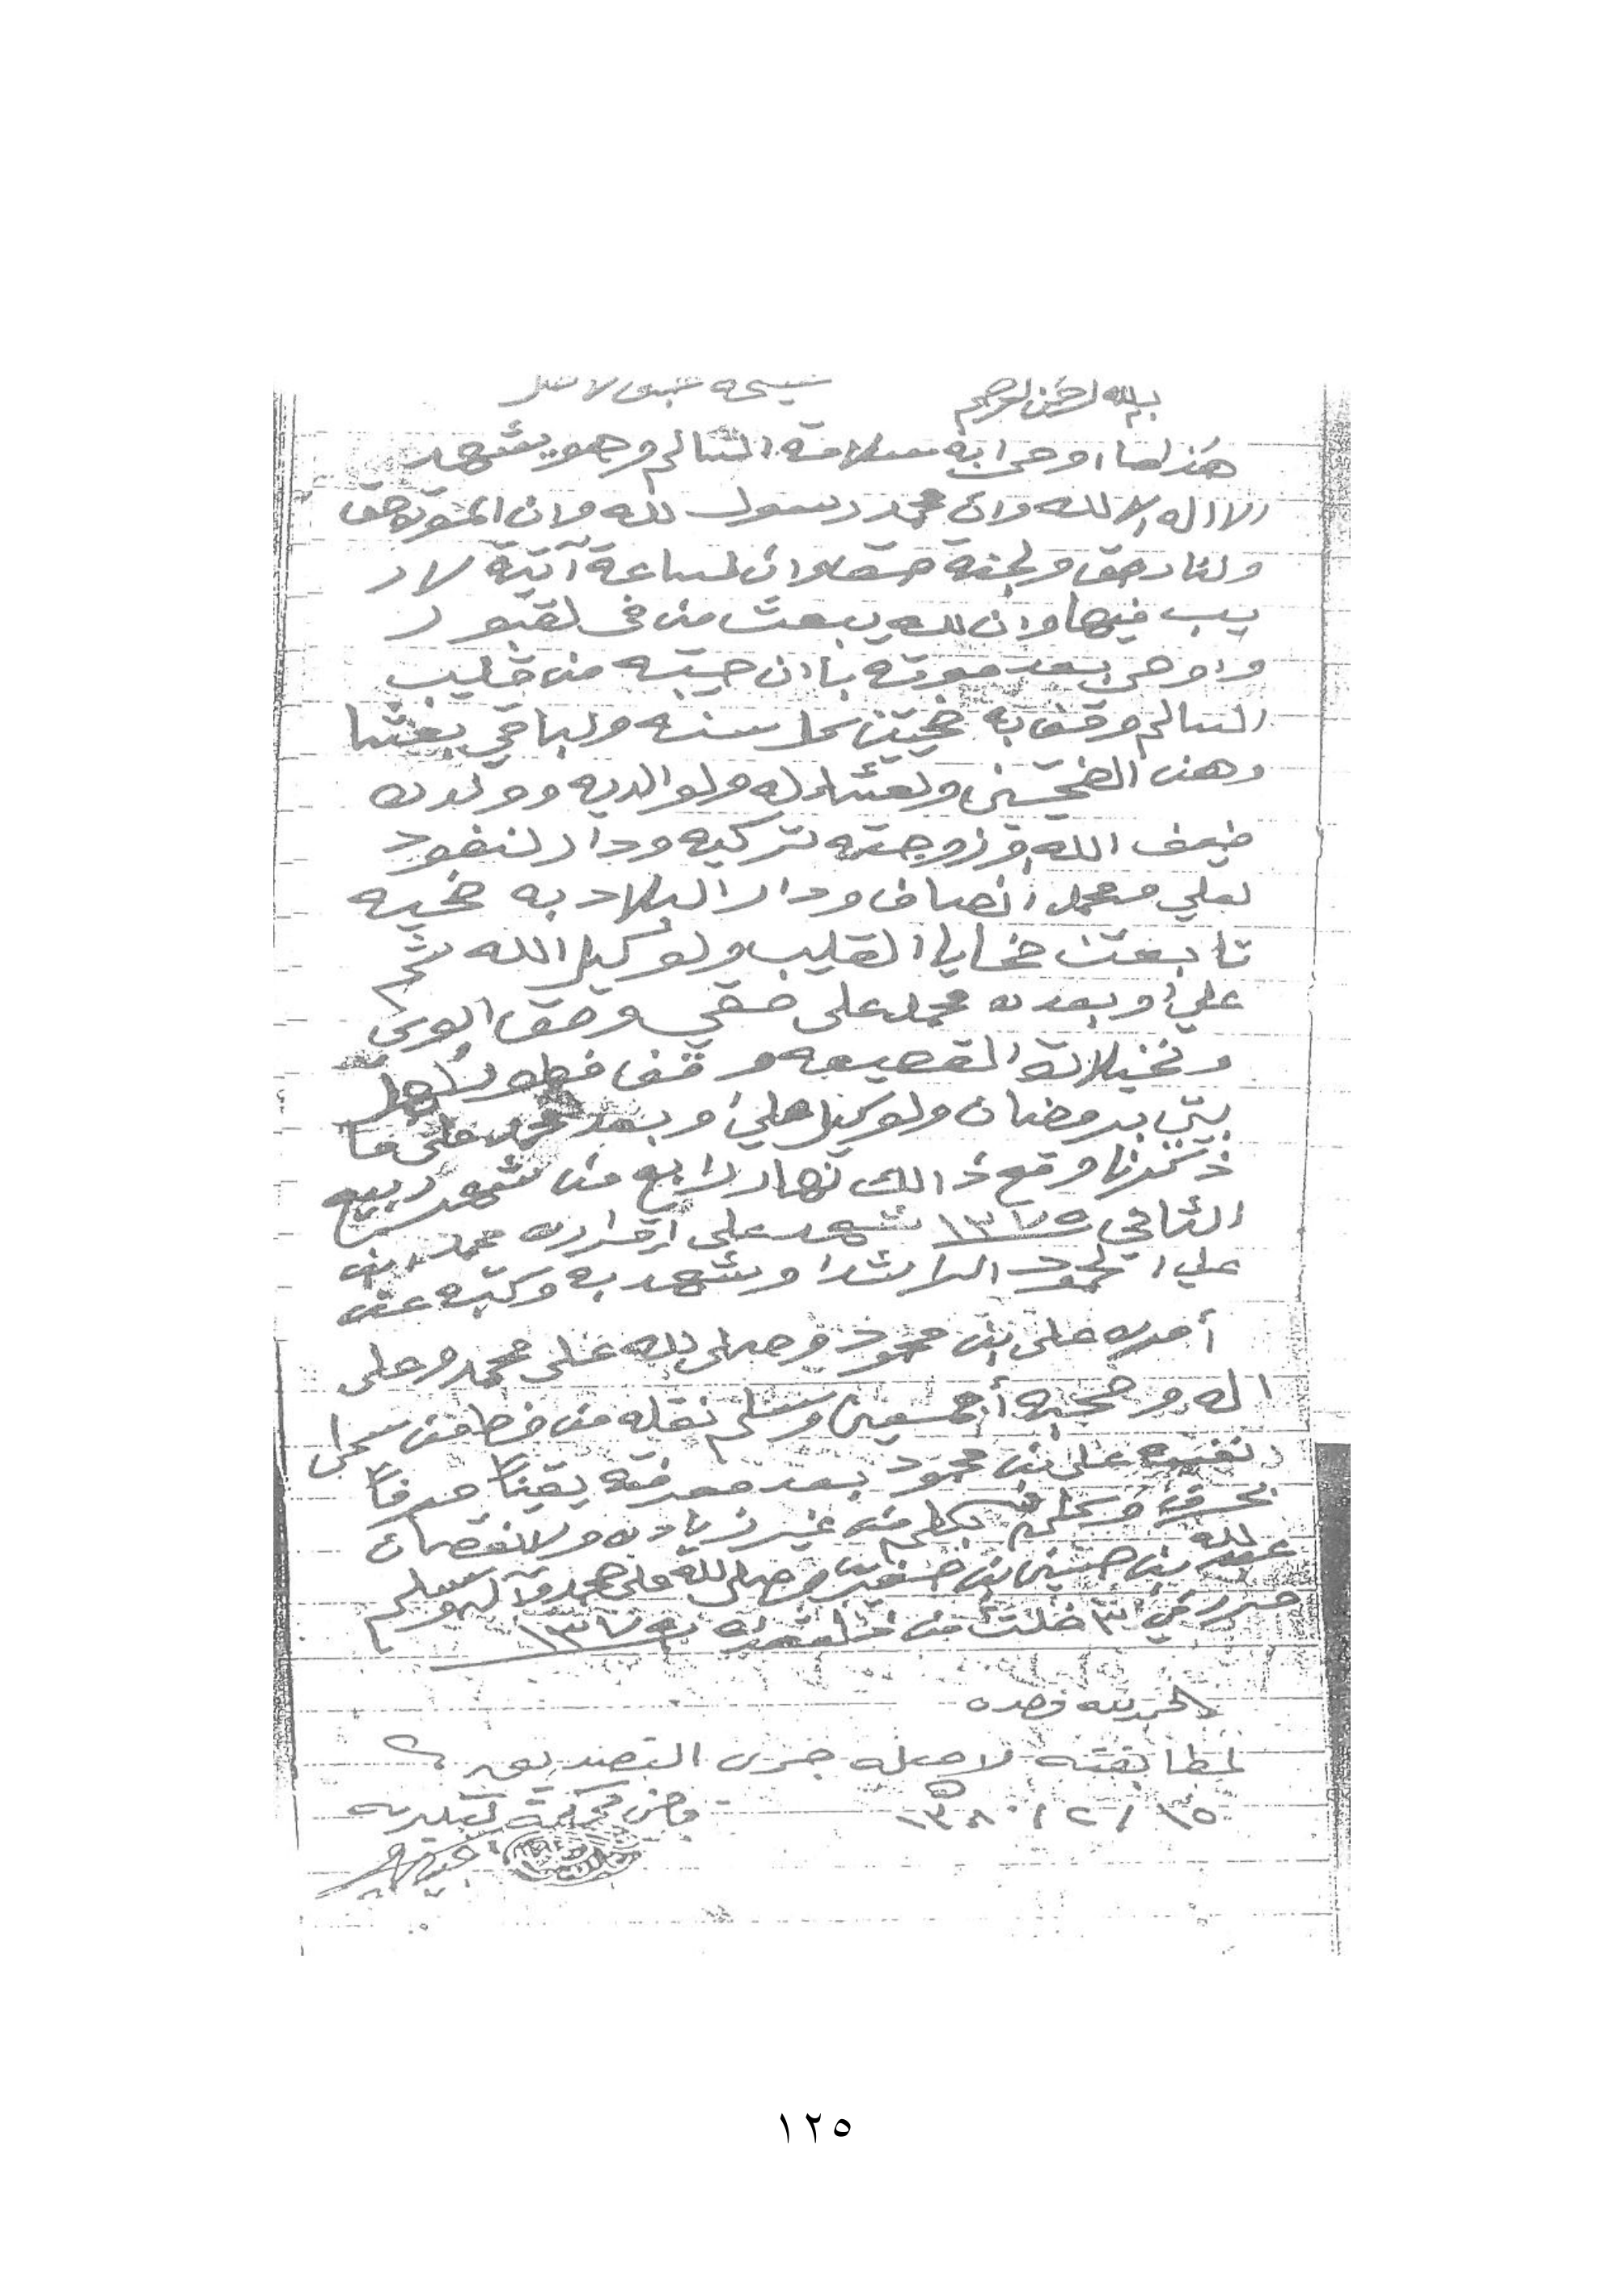 بسم الله الرحمن الرحيم نسخة طبق لاصل
هذا ما اوصى به سلامة السالم وهو يشهد
الا اله الا الله وان محمد رسول الله وان الموت حق
ولنار حق ولجنة حق وان لساعة آتية لا ر
يب فيها وان لله يبعث من في لقبور
واوصى بعد موته باان صيبته من قليب
السالم وقف به ضحيتين كل سنه ولباقي بعشا
وهن الضحيتين ولعشاء له ولوالديه وولده
ضيف الله وزوجته تركيه ودار لنفود
لعلي محمد انصاف ودار البلاد به ضحيه
تابعتن ضحايا القليب ولوكيل الله ثم
علي وبعده محمد على حقي وحق ابوي
ونخيلات القصيعه وقف فطور لاهل
بيتي برمضان ولوكيل علي وبعد محمد على ما
ذكرنا وقع ذالك نهار رابع من شهر ربيع
الثاني ١٣٧٥ شهد على اقراره محمد ابن
علي المحمود الراشد وشهد به وكتبه عن
أمره علي ابن محمود وصلى لله على محمد وعلى
اله وصحبه أجمعين وسلم نقله من خط من سمى
نفسه علي بن محمود بعد معرفته يقيناً حرفاً
بحرف وكلم بكلم من غير زياده ولا نقصان
عبد لله بن حسين بن وصلى لله على محمد وآله وسلم
حرر في ٣ خلت من ١٣٧٥
الحمد لله وحده
لمطابقته لاصله جرى التصديق
١٥ / ٢ / ١٣٨٠ه قاضي محكمة
١٢٥